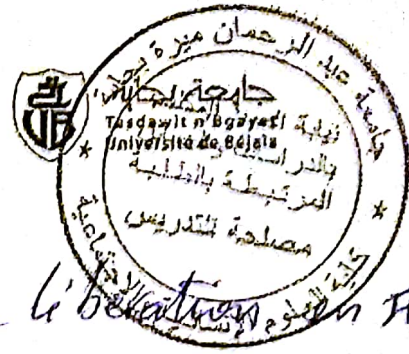 جامعة عبد الرحمان ميرة بجاية
جامعة بجاية
Tasdawit n'Bgayet
Université de Béjaïa
نيابة
بالدراسات
المرتبطة بالطلبة
مصلحة التدريس
كلية العلوم الإنسانية الاجتماعية
libération en